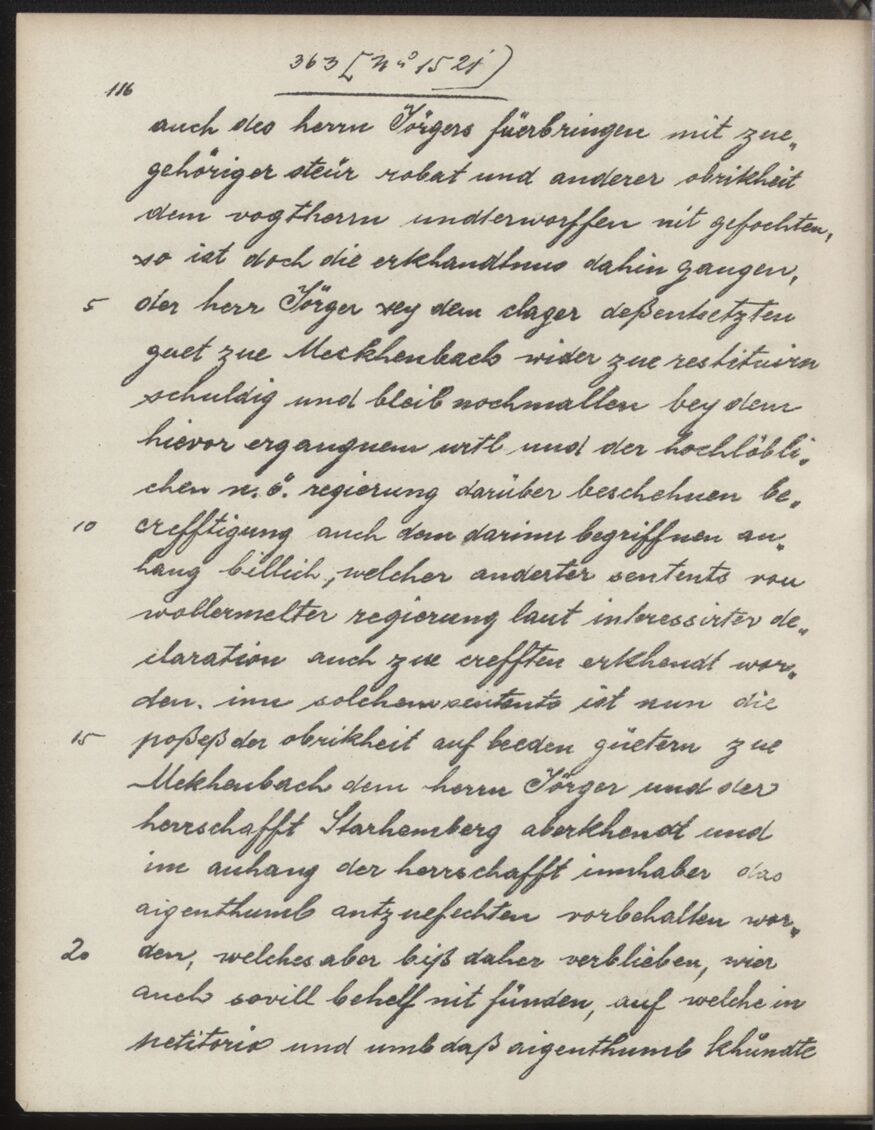 363 [Nº 1521)
116
auch des herrn Jörgers füerbringen mit zue„
gehöriger steür robat und anderer obrikheit
dem vogtherrn underworffen nit gefochten,
so ist doch die erkhandtnus dahin gangen,
5 der herr Jörger sey dem clager deßentsetzten
guet zue Meckhenbach wider zue restituirn
schuldig und bleib nochmallen bey dem
hievor ergangnem urtl und der hochlöbli„
chen n. ö. regierung darüber beschehnen be„
10 crefftigung auch dem darinn begriffnen an„
hang billich, welcher anderter sentents von
wollermelter regierung laut interessirter de„
claration auch zue crefften erkhendt wor„
den. inn solchem sentents ist nun die
15 poßeß der obrikheit auf beeden güetern zue
Mekhenbach dem herrn Jörger und der
herrschafft Starhemberg aberkhendt und
im anhang der herrschafft innhaber das
aigenthumb antzuefechten vorbehalten wor„
20 den, welches aber biß daher verblieben, wier
auch sovill behelf nit fünden, auf welche in
petitorio und umb daß aigenthumb khündte